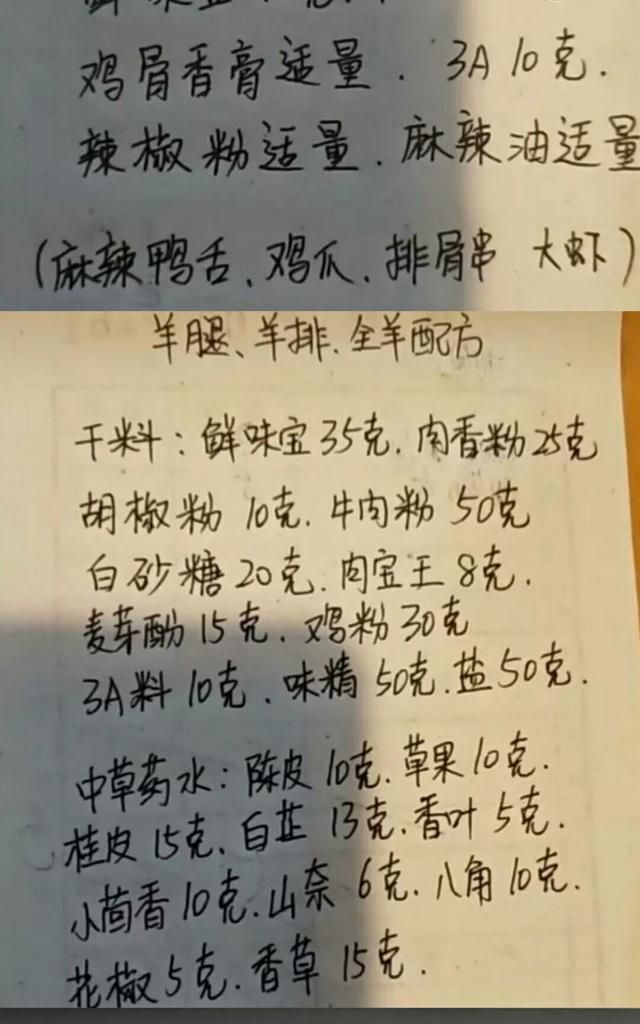 鸡骨香膏适量. 3A 10克.
辣椒粉适量. 麻辣油适量
(麻辣鸭舌、鸡爪、排骨串 大虾)
羊腿、羊排、全羊配方
干料: 鲜味宝35克. 肉香粉25克
胡椒粉 10克. 牛肉粉 50克
白砂糖20克. 肉宝王 8克.
麦芽酚15克、鸡粉30克
3A料10克、味精50克.盐50克.
中草药水: 陈皮10克.草果10克.
桂皮15克.白芷 13克.香叶5克.
小茴香10克.山奈 6克.八角10克.
花椒5克.香草15克.